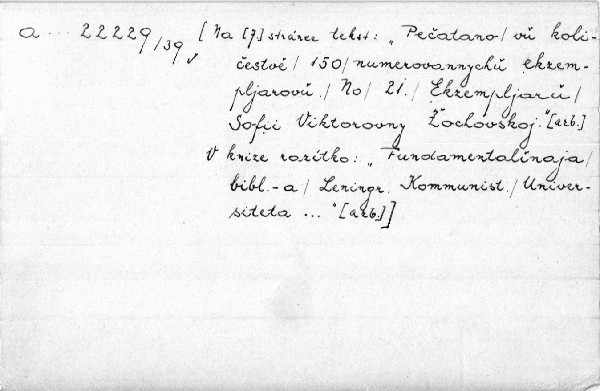 a ... 22229/39 [Na [7] stránce tekst: „Pečatano/ vŭ koli-
čestvě/ 150/ numerovannychŭ ekzem-
pljarovŭ./ No/ 21./ Ekzempljarŭ/
Sofii Viktorovny Žochovskoj." [azb.]
V knize razítko: „Fundamentalĭnaja/
bibl.-a/ Leningr. Kommunist./ Univer-
siteta ..." [azb.]]